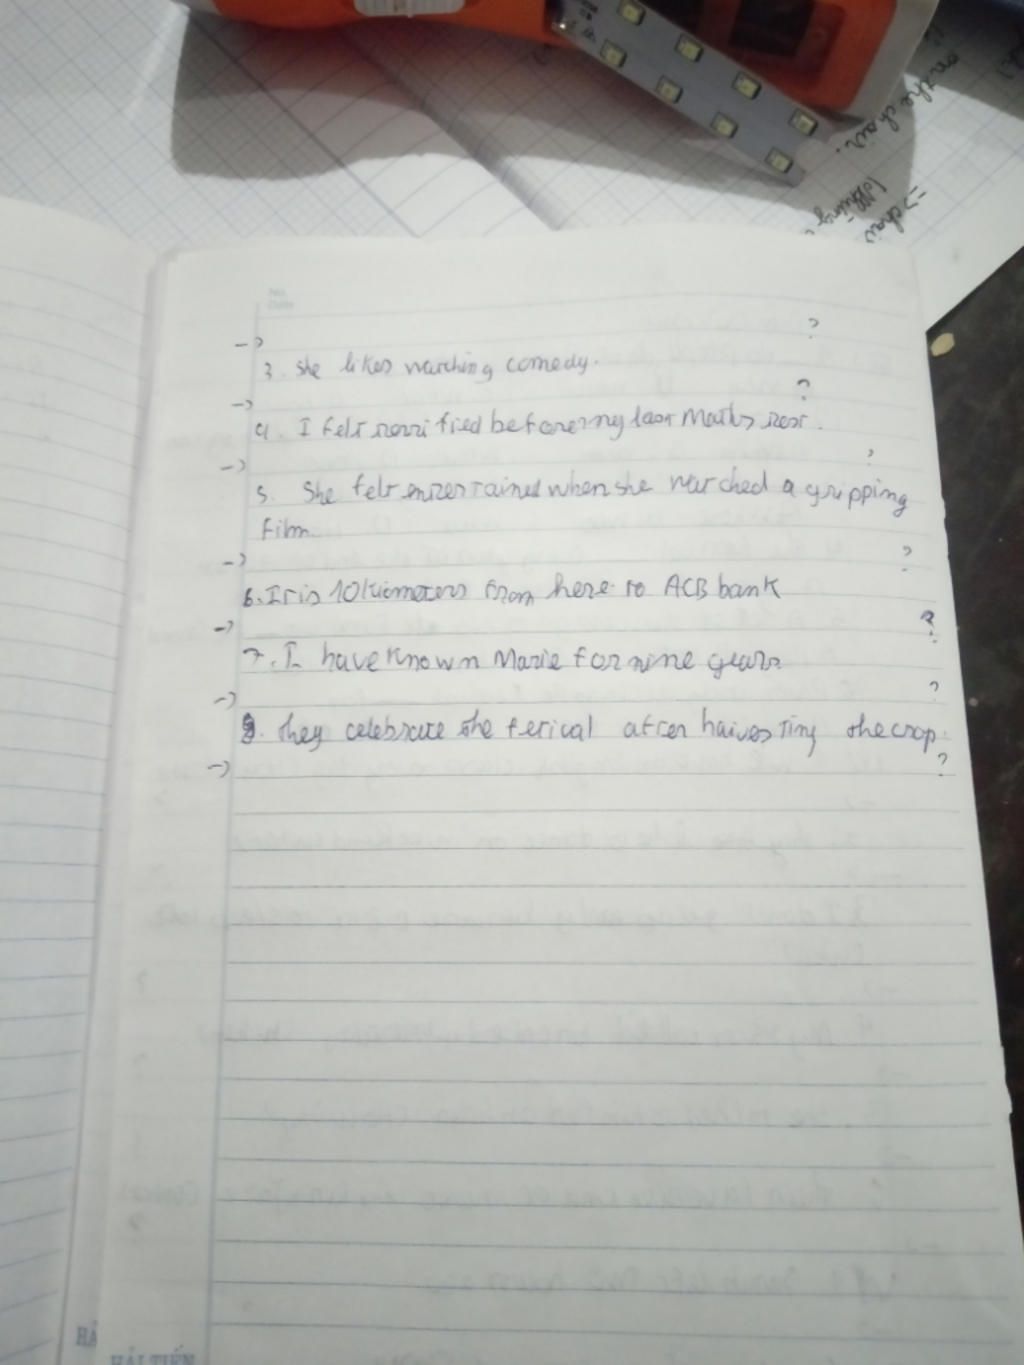 on the chair.
=> chair
No.
Date
-> ?
3. She likes watching comedy.
-> ?
4. I felt terrified before my last Maths test.
-> ?
5. She felt entertained when she watched a gripping
film.
-> ?
6. It is 10 kiometers from here to ACB bank
-> ?
7. I have known Marie for nine years
-> ?
8. they celebrate the ferical after haivesting the crop.
-> ?
HẢI TIẾN